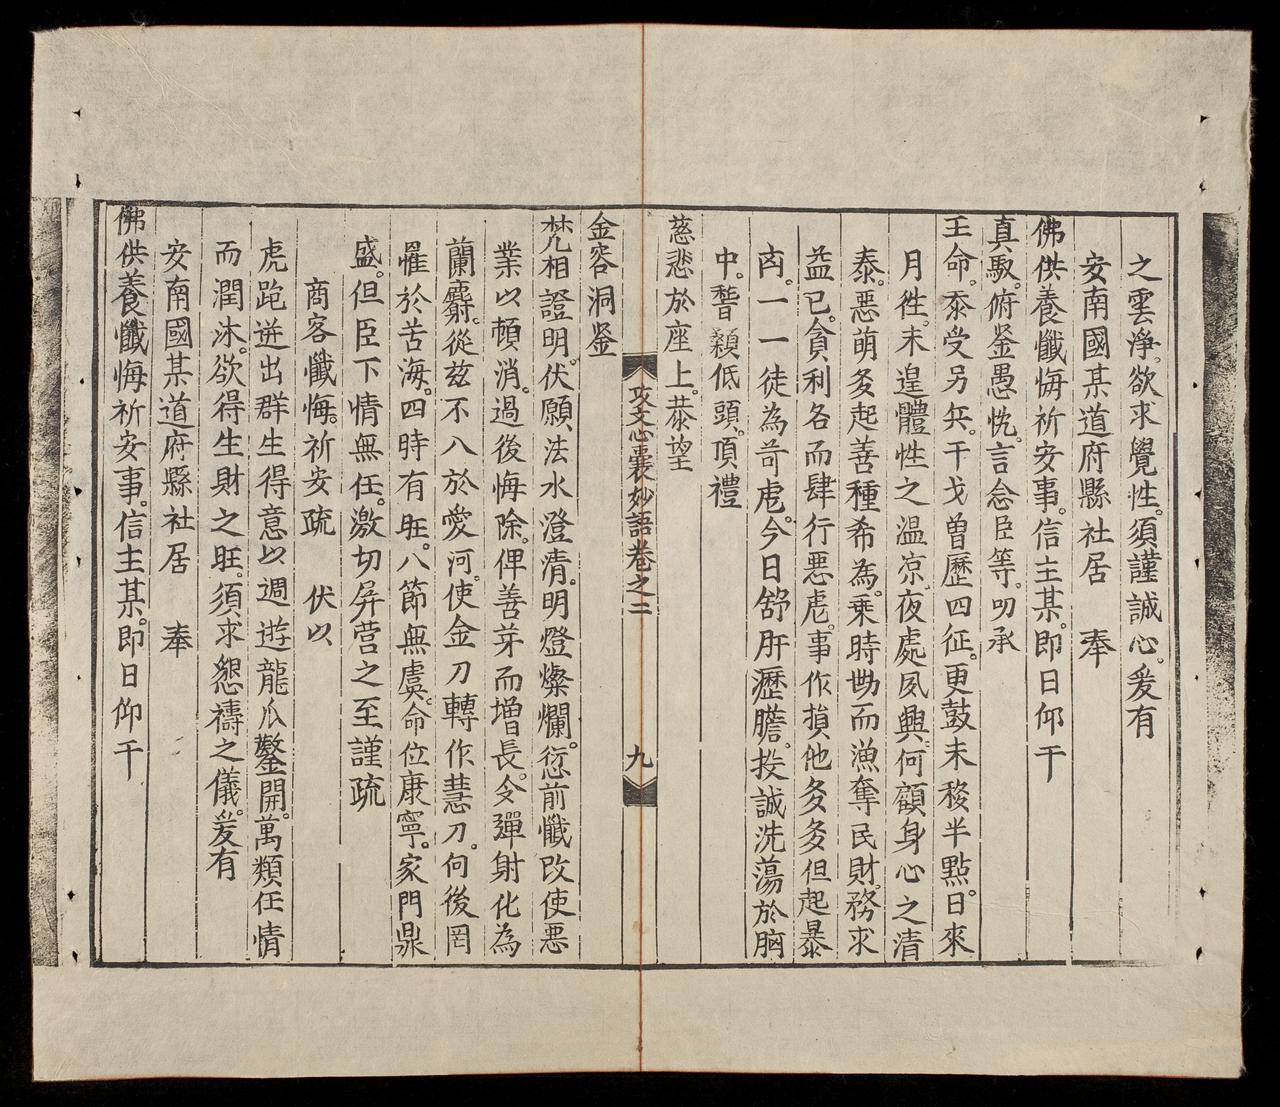 之雲淨。欲求覺性。須謹誠心。爰有
安南國某道府縣社居　奉
佛供養懺悔祈安事。信主某。即日仰干
真馭。俯鉴愚忱。言念臣等。叨承
王命。忝受另兵。干戈曾歷四征。更鼓未移半點。日來
月徃。未遑體性之温凉。夜處夙興。何顧身心之清
泰。悪萌多起善種希為。乘時勢而漁奪民財。務求
益己。貪利各而肆行悪虐。事作損他多多但起暴
肉。一一徒為苛虐。今日舒肝瀝膽。投誠洗蕩於胸
中。誓顙低頭。頂禮
慈悲於座上。恭望
攻文心囊妙語卷之二　九
金容洞鉴
梵相證明。伏願。法水澄清。明燈燦爛。愆前懺改使悪
業以頓消。過後悔除。俾善芽而增長。令彈射化為
蘭麝。從玆不入於愛河。使金刀轉作慧刀。向後罔
罹於苦海。四時有旺。八節無虞。命位康寧。家門鼎
盛。但臣下情無任。激切屏营之至謹疏
商客懺悔。祈安疏　伏以
虎跑迸出群生得意以週遊龍爪鑿開。萬類任情
而潤沐。欲得生財之旺。須求懇禱之儀。爰有
安南國某道府縣社居　奉
佛供養懺悔祈安事。信主某。即日仰干